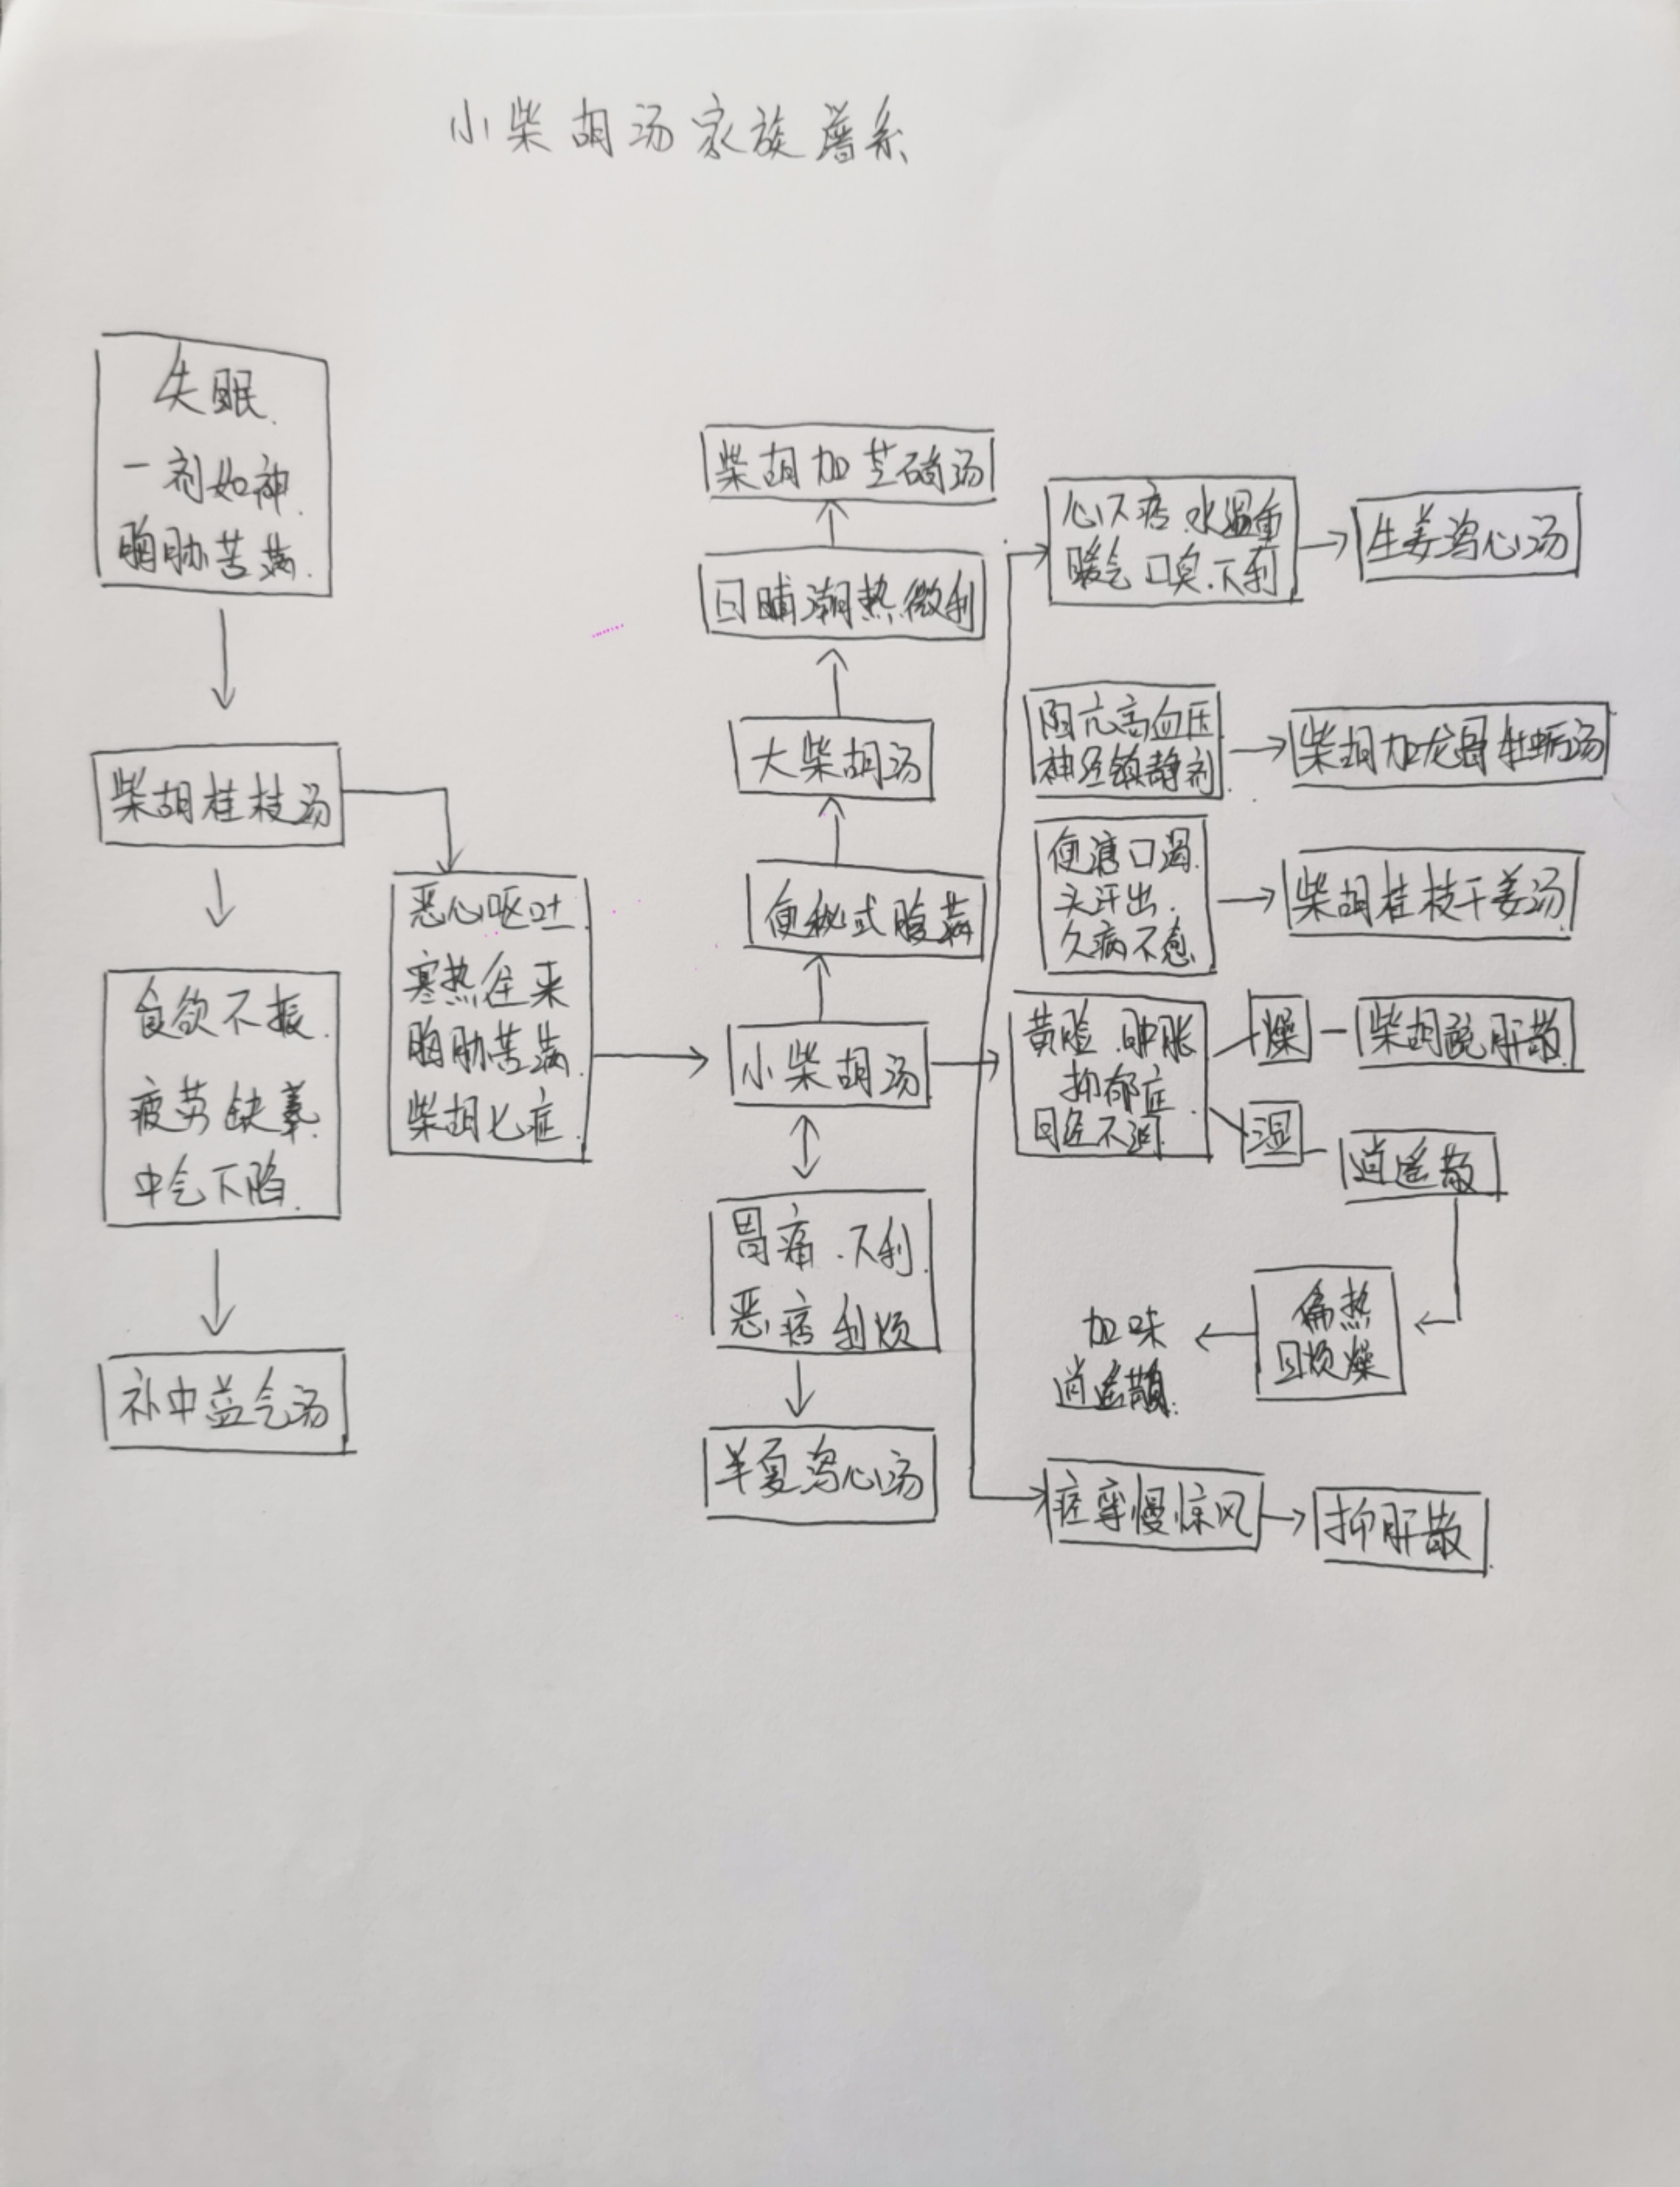 小柴胡汤家族谱系
失眠.
一剂如神.
胸胁苦满.
柴胡桂枝汤
食欲不振.
疲劳缺氧.
中气下陷.
补中益气汤
恶心呕吐.
寒热往来
胸胁苦满.
柴胡七症.
柴胡加芒硝汤
日晡潮热微利
大柴胡汤
便秘式腹满
小柴胡汤
胃痛.下利.
恶痞利烦
半夏泻心汤
心下痞.水湿重
嗳气口臭.下利
生姜泻心汤
阳亢高血压
神经镇静剂.
柴胡加龙骨牡蛎汤
便溏口渴.
头汗出.
久病不愈.
柴胡桂枝干姜汤
黄脸.肿胀
抑郁症.
月经不调.
燥
柴胡疏肝散
湿
逍遥散
偏热
日烦燥
加味
逍遥散.
痉挛慢惊风
抑肝散